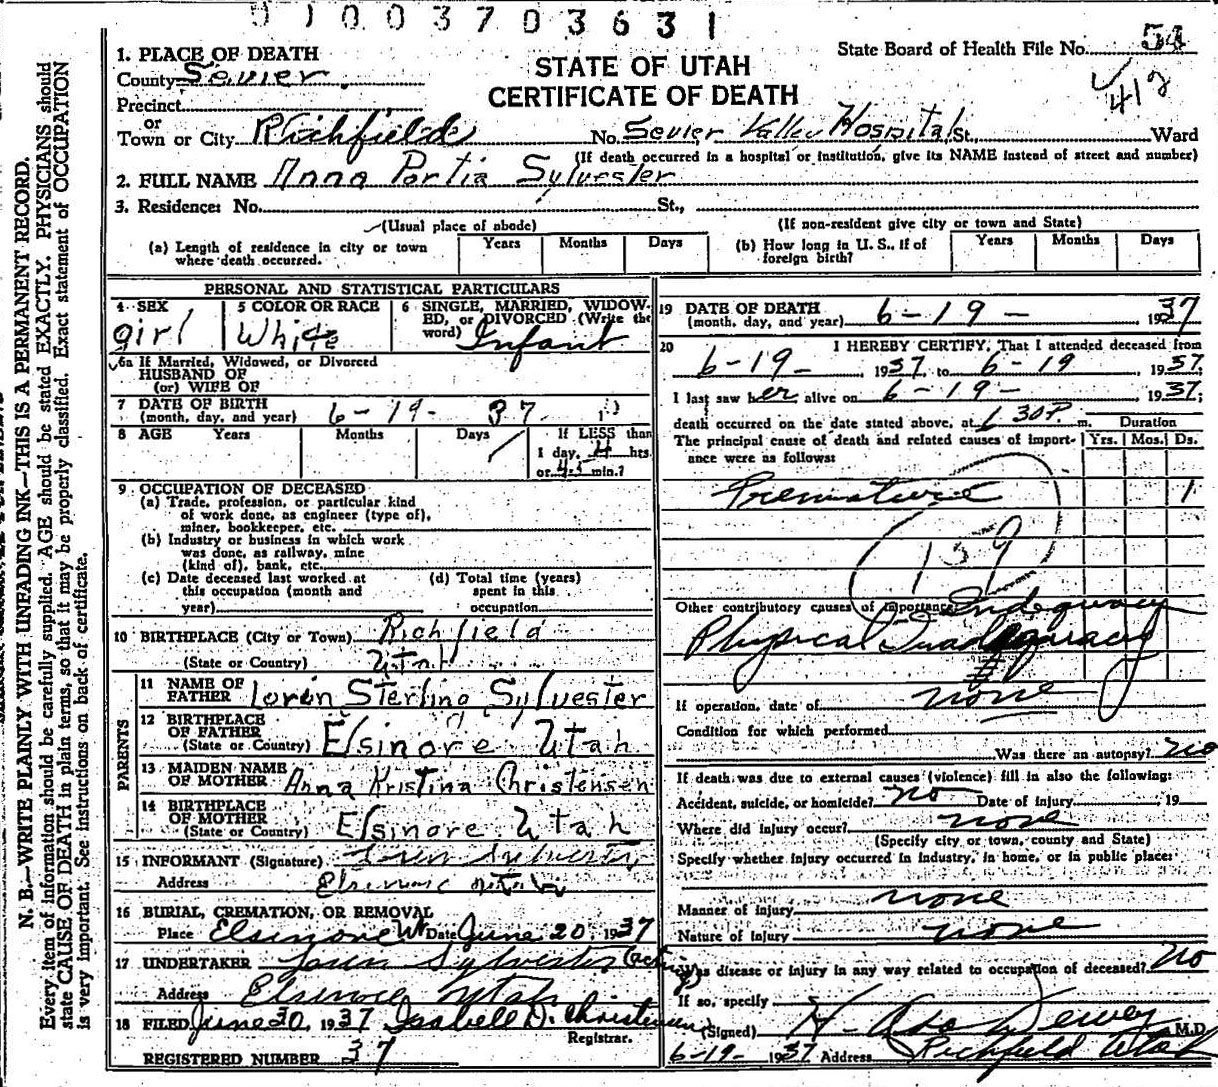 01003703631
State Board of Health File No. 54
412
STATE OF UTAH
CERTIFICATE OF DEATH
1. PLACE OF DEATH
County Sevier
Precinct
or
Town or City Richfield No. Sevier Valley Hospital St. Ward
(If death occurred in a hospital or institution, give its NAME instead of street and number)
2. FULL NAME Anna Portia Sylvester
3. Residence: No. St.,
(Usual place of abode) (If non-resident give city or town and State)
(a) Length of residence in city or town where death occurred. Years Months Days (b) How long in U. S., if of foreign birth? Years Months Days
PERSONAL AND STATISTICAL PARTICULARS
4 SEX girl
5 COLOR OR RACE White
6 SINGLE, MARRIED, WIDOWED, or DIVORCED (Write the word) Infant
6a If Married, Widowed, or Divorced
HUSBAND OF
(or) WIFE OF
7 DATE OF BIRTH
(month, day, and year) 6-19-37
8 AGE Years Months Days If LESS than
1 day, 4 hrs.
or 45 min.?
9 OCCUPATION OF DECEASED
(a) Trade, profession, or particular kind
of work done, as engineer (type of),
miner, bookkeeper, etc.
(b) Industry or business in which work
was done, as railway, mine
(kind of), bank, etc.
(c) Date deceased last worked at
this occupation (month and
year)
(d) Total time (years)
spent in this
occupation
10 BIRTHPLACE (City or Town) Richfield
(State or Country) Utah
PARENTS
11 NAME OF FATHER Loren Sterling Sylvester
12 BIRTHPLACE OF FATHER
(State or Country) Elsinore Utah
13 MAIDEN NAME OF MOTHER Anna Kristina Christensen
14 BIRTHPLACE OF MOTHER
(State or Country) Elsinore Utah
15 INFORMANT (Signature) Loren Sylvester
Address Elsinore Utah
16 BURIAL, CREMATION, OR REMOVAL
Place Elsinore Ut Date June 20, 1937
17 UNDERTAKER Loren Sylvester (acting)
Address Elsinore Utah
18 FILED June 30, 1937 Isabell D. Christensen
Registrar.
REGISTERED NUMBER 37
19 DATE OF DEATH
(month, day, and year) 6-19- , 1937
20 I HEREBY CERTIFY, That I attended deceased from
6-19- , 1937, to 6-19 , 1937.
I last saw her alive on 6-19- , 1937;
death occurred on the date stated above, at 6 30 P. m. Duration
The principal cause of death and related causes of importance were as follows: Yrs. Mos. Ds.
Premature 1
159
Other contributory causes of importance
Physical
If operation, date of none
Condition for which performed
Was there an autopsy? no
If death was due to external causes (violence) fill in also the following:
Accident, suicide, or homicide? no Date of injury , 19
Where did injury occur? none
(Specify city or town, county and State)
Specify whether injury occurred in industry, in home, or in public place:
none
Manner of injury none
Nature of injury none
Was disease or injury in any way related to occupation of deceased? no
If so, specify
(Signed) Dewey M.D.
6-19- 1937 Address Richfield Utah
N. B.—WRITE PLAINLY WITH UNFADING INK—THIS IS A PERMANENT RECORD.
Every item of information should be carefully supplied. AGE should be stated EXACTLY. PHYSICIANS should
state CAUSE OF DEATH in plain terms, so that it may be properly classified. Exact statement of OCCUPATION
is very important. See instructions on back of certificate.